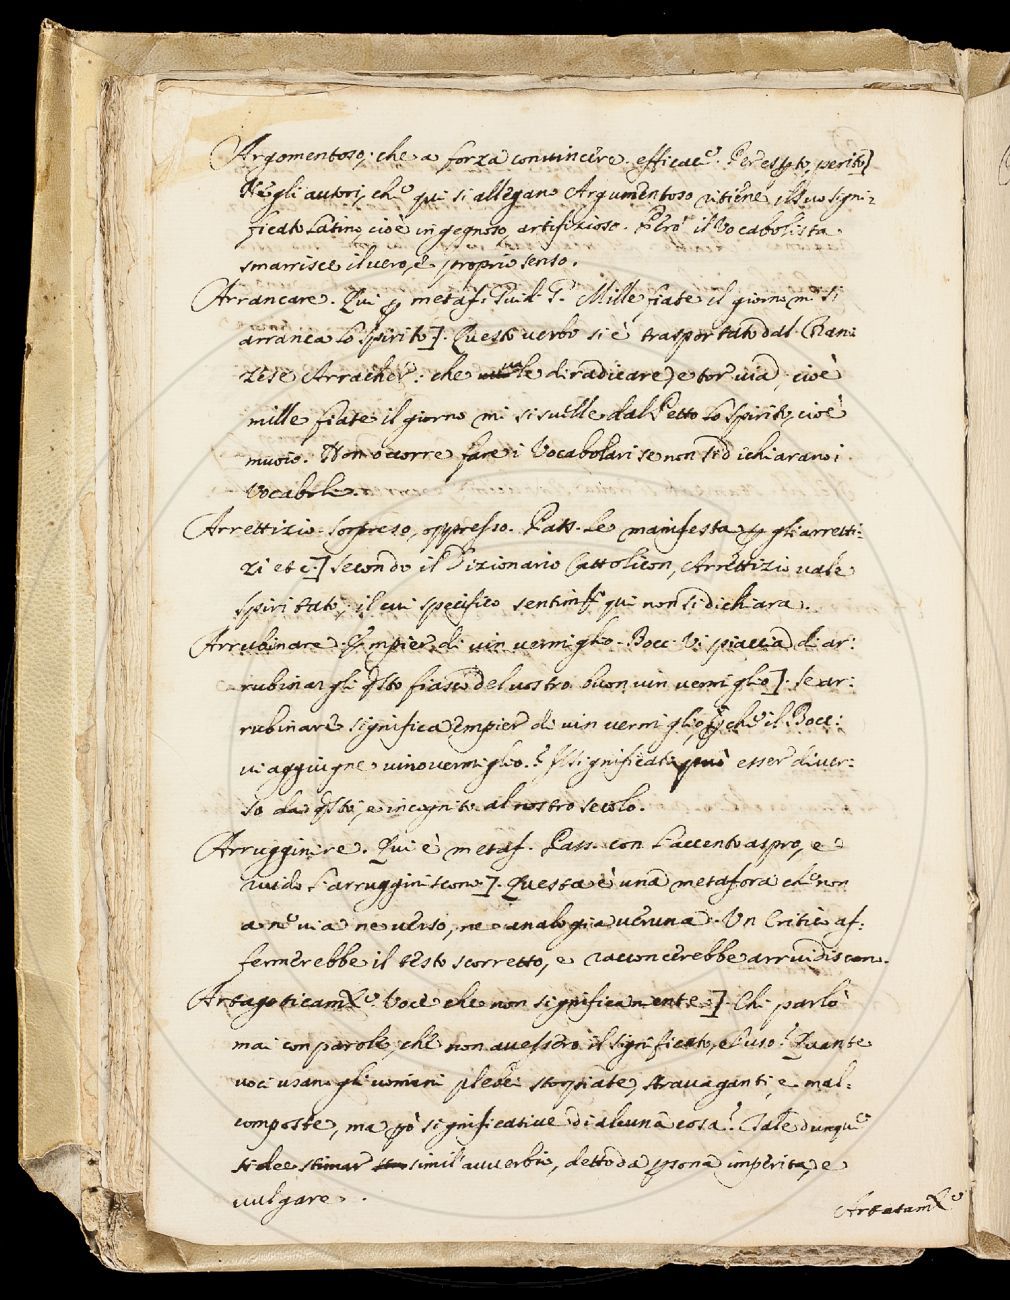 Argomentoso, che a forza convincere. efficace. Per esperto, perito]
Negli autori, che qui si allegano Argumentoso ritiene il suo signi-
ficato Latino, cioè ingegnoso, artifizioso. Però il Vocabolista
smarrisce il vero, e proprio senso.
Arrancare. Qui p metaf. Guid. G. Mille fiate il giorno mi si
arranca lo spirito]. Questo verbo si è trasportato dal Fran-
zese Arracher: che vale diradicare, e tor via, cioè
mille fiate il giorno mi si svelle dal Petto lo spirito, cioè
muoio. Non occorre fare i Vocabolari se non si dichiarano i
Vocaboli.
Arrettizio: sorpreso, oppresso. Pass. Le manifesta p gli arretti-
zi etc.] secondo il Dizionario Cattolicon, Arrettizio vale
spiritato, il cui specifico sentimto qui non si dichiara.
Arrubinare. Empier di vin vermiglio. Bocc. Vi piaccia di ar-
rubinargli qsto fiasco del vostro buon vin vermiglio]. Se ar-
rubinare significa empier di vin vermiglio, pchè il Bocc:
vi aggiugne vino vermiglio? Il significato può esser diver-
so da qsto, e incognito al nostro secolo.
Arrugginire. Qui è metaf. Pass. con l'accento aspro, e
ruvido l'arrugginiscono]. Questa è una metafora che non
a ne via ne verso, ne analogia veruna. Un Critico af-
fermerebbe il testo scorretto, e racconcerebbe arruvidiscono.
Artagoticamte. Voce che non significa niente]. Chi parlò
mai con parole, che non avessero il significato, e l'uso? Quante
voci usano gli uomini plebei storpiate, stravaganti, e mal-
composte, ma pò significative di alcuna cosa? Tale dunque
si dee stimar simil' avverbio, detto da psona imperita, e
vulgare.
Artatamte